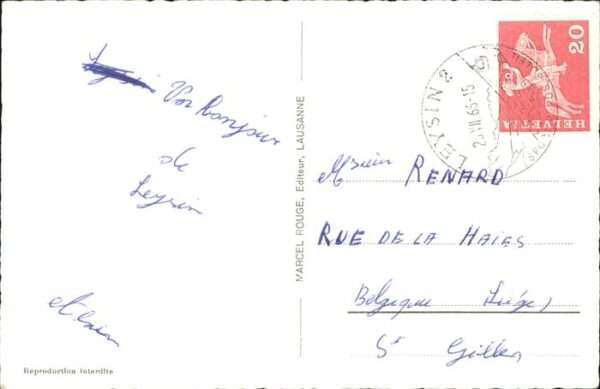 Un Bonjour
de
Leysin
Reproduction interdite
MARCEL ROUGE, Editeur, LAUSANNE
20
HELVETIA
LEYSIN 2
Msieur RENARD
RUE DE LA HAIES
Belgique Liége)
St Gilles